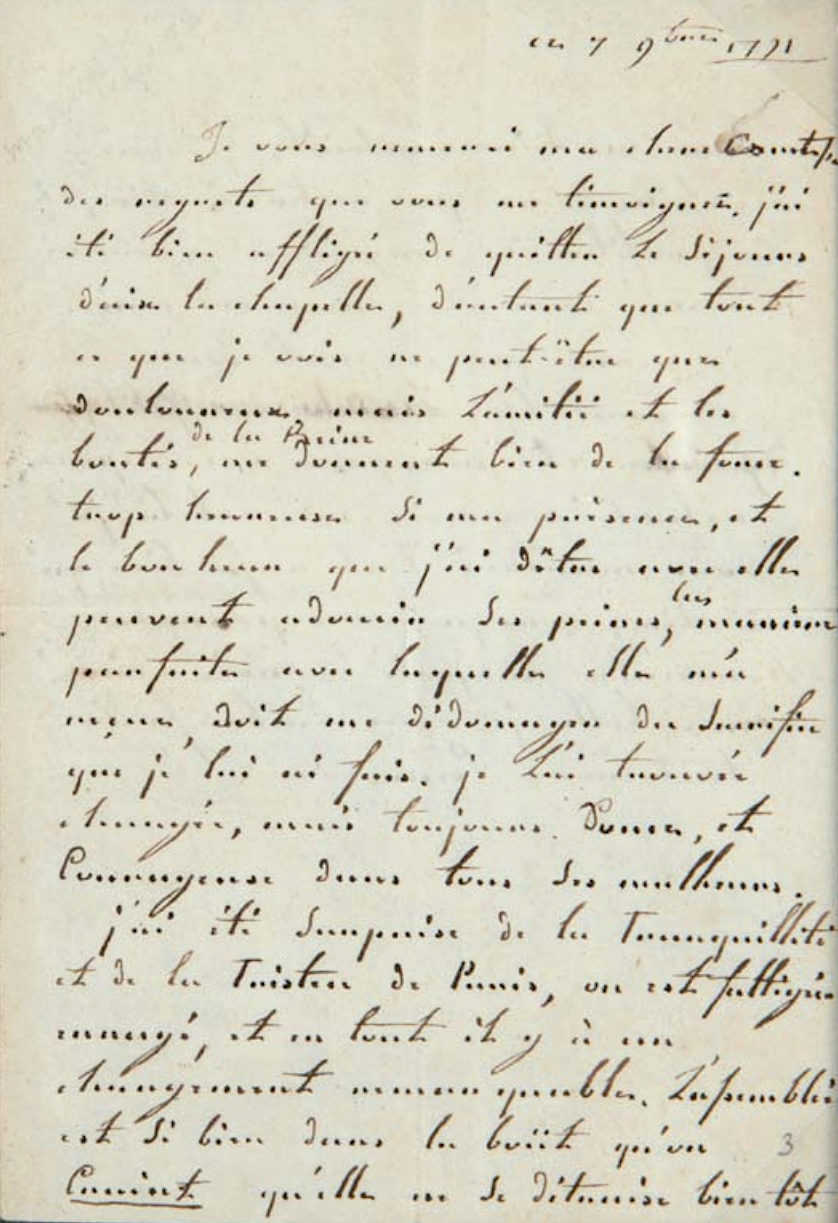 ce 7 9bre 1791
Je vous remercie ma chere Comtesse
des regrets que vous me temoignez. j'ai
été bien affligé de quitter le Séjour
d'aix la chapelle, d'autant que tout
ce que je vois ne peut-être que
douloureux. mais L'amitié et les
de la Reine
bontés, me donnent bien de la force.
trop heureuse Si ma présence, et
le bonheur que j'ai d'être avec elle
peuvent adoucir Ses peines, la manière
parfaite avec laquelle elle m'a
reçue, doit me dédomager du Sacrifice
que je lui ai fais. je L'ai trouvée
changée, mais toujours Douce, et
Courageuse dans tous Ses malheurs.
j'ai été Surprise de la Tranquillité
et de la Tristesse de Paris, on est fattigué
et en tout il y à un
changement remarquable. L'assemblée
est Si bien dans la boüe qu'on
Craint qu'elle ne Se détruise bientôt
3